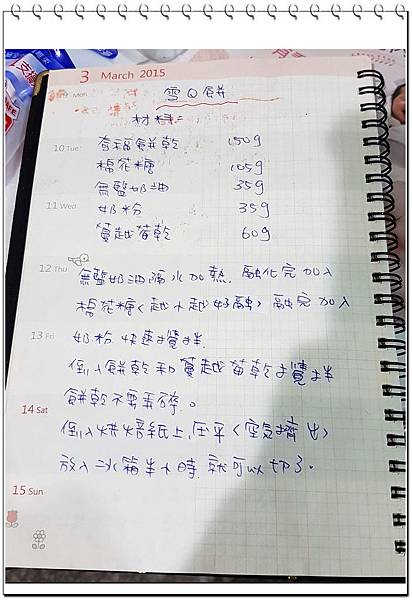 支糖
3 March 2015
9 Mon
雪Q餅
材料:
10 Tue 奇福餅乾 150g
棉花糖 105g
無鹽奶油 35g
11 Wed 奶粉 35g
蔓越莓乾 60g
12 Thu 無鹽奶油隔水加熱,融化完加入
棉花糖(越小越好融)融完加入
13 Fri 奶粉快速攪拌.
倒入餅乾和蔓越莓乾攪拌
餅乾不要弄碎。
14 Sat 倒入烘焙紙上,压平(空氣擠出)
放入冰箱半小時,就可以切了。
15 Sun